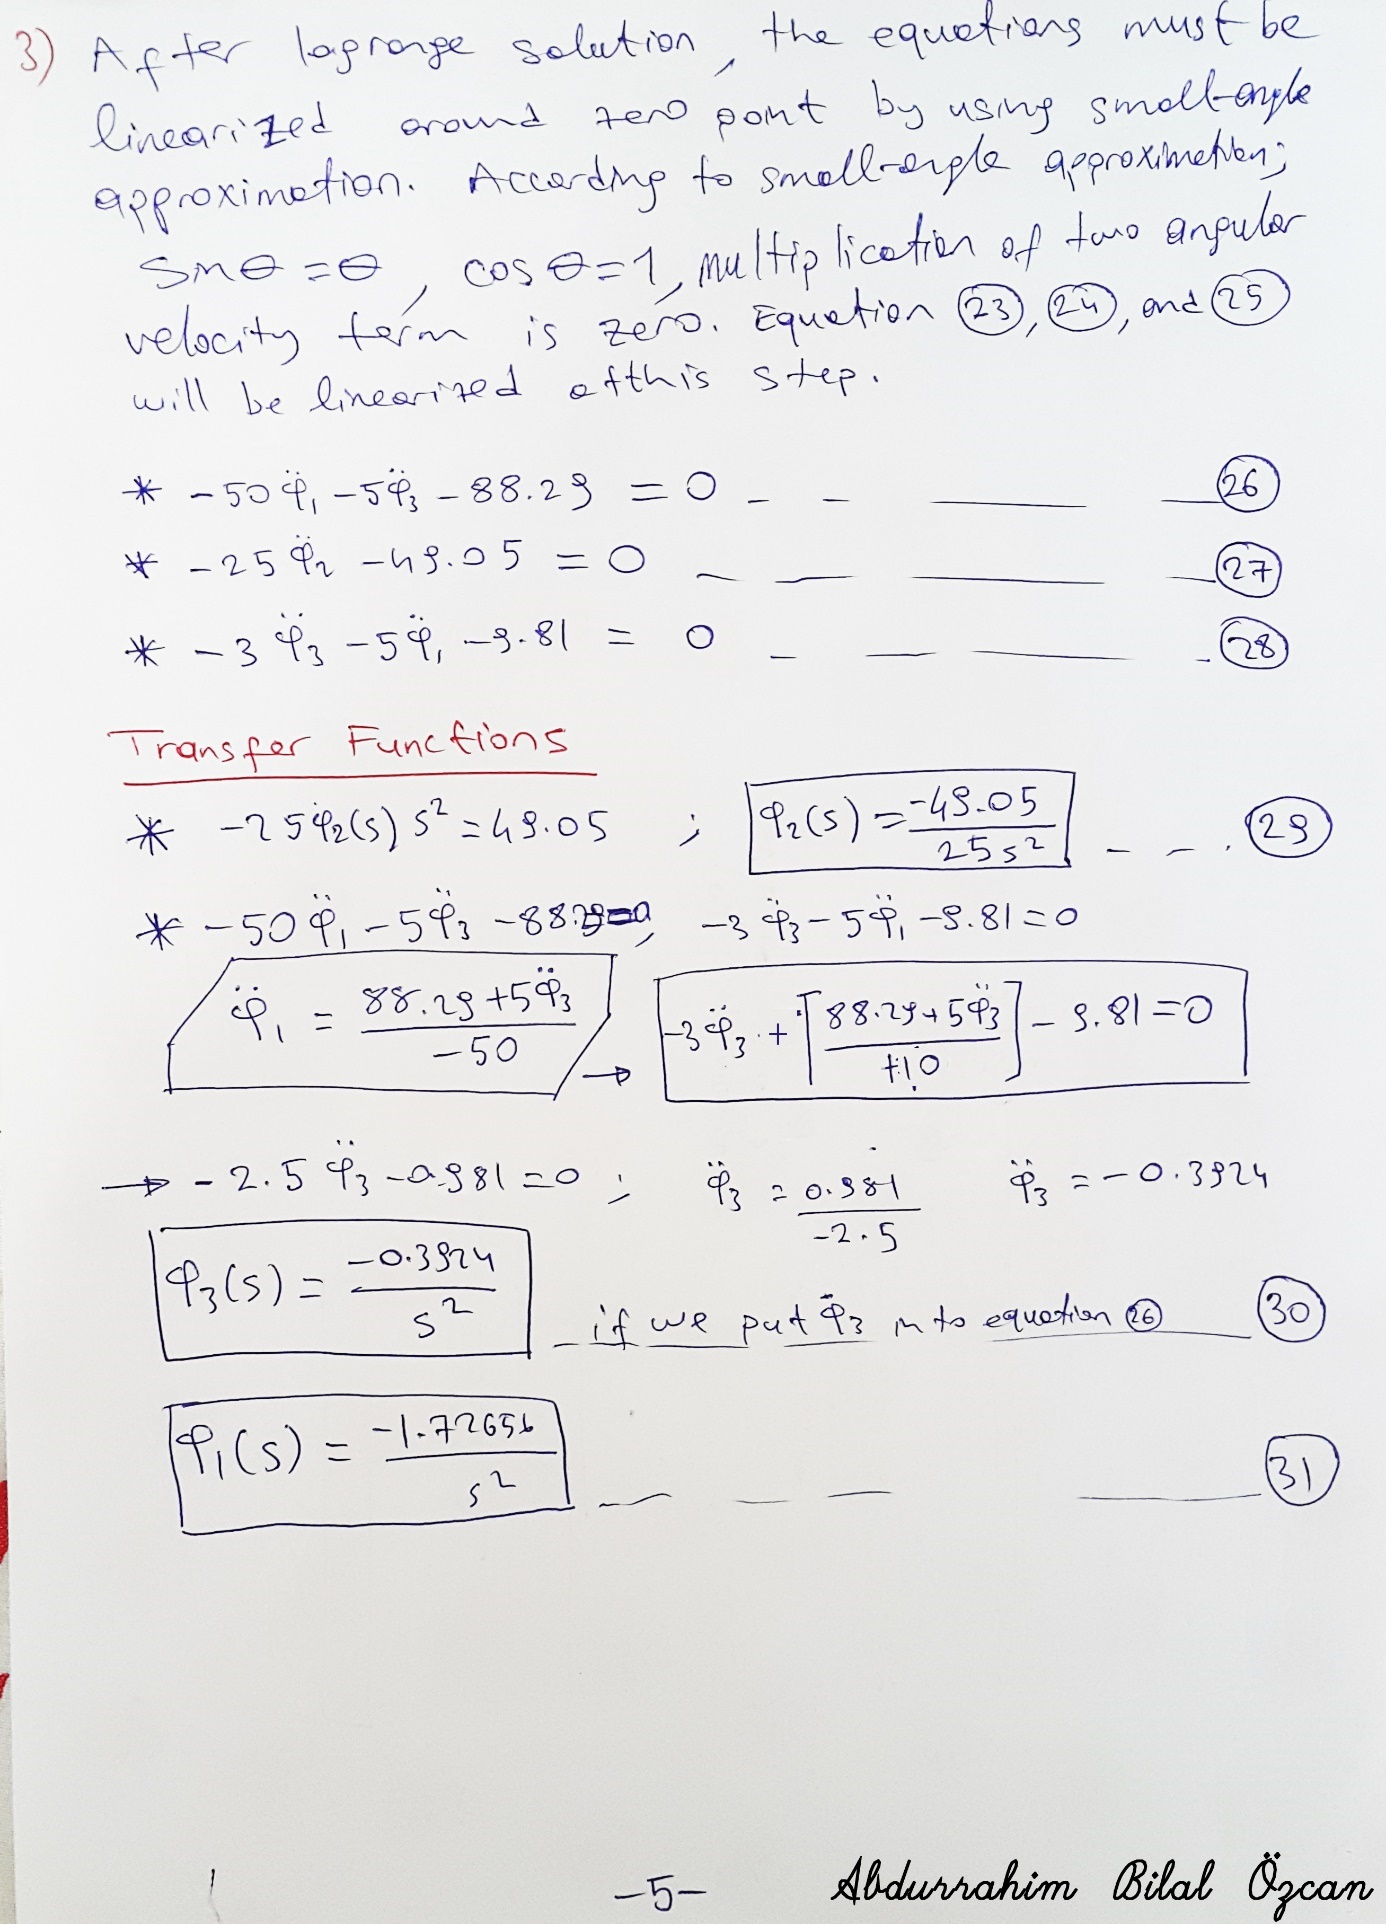 3) After lagrange solution, the equations must be
linearized around zero point by using small-angle
approximation. According to small-angle approximation;
Sinθ = θ, cosθ=1, multiplication of two angular
velocity term is zero. Equation (23), (24), and (25)
will be linearized afthis step.
* -50φ̈₁ -5φ̈₃ -88.29 = 0 - - — — (26)
* -25φ̈₂ -49.05 = 0 - — — — (27)
* -3φ̈₃ -5φ̈₁ -9.81 = 0 - — — - (28)
Transfer Functions
* -25φ₂(s) s² = 49.05 ; φ₂(s) = -49.05 / 25s² - - . (29)
* -50φ̈₁ -5φ̈₃ -88.29=0, -3φ̈₃ -5φ̈₁ -9.81=0
φ̈₁ = 88.29+5φ̈₃ / -50 → -3φ̈₃ + [88.29+5φ̈₃ / +10] - 9.81=0
→ -2.5φ̈₃ -0.981=0 ; φ̈₃ = 0.981 / -2.5 φ̈₃ = -0.3924
φ₃(s) = -0.3924 / s² if we put φ̈₃ into equation (26) (30)
φ₁(s) = -1.72656 / s² — - - — (31)
-5-
Abdurrahim Bilal Özcan